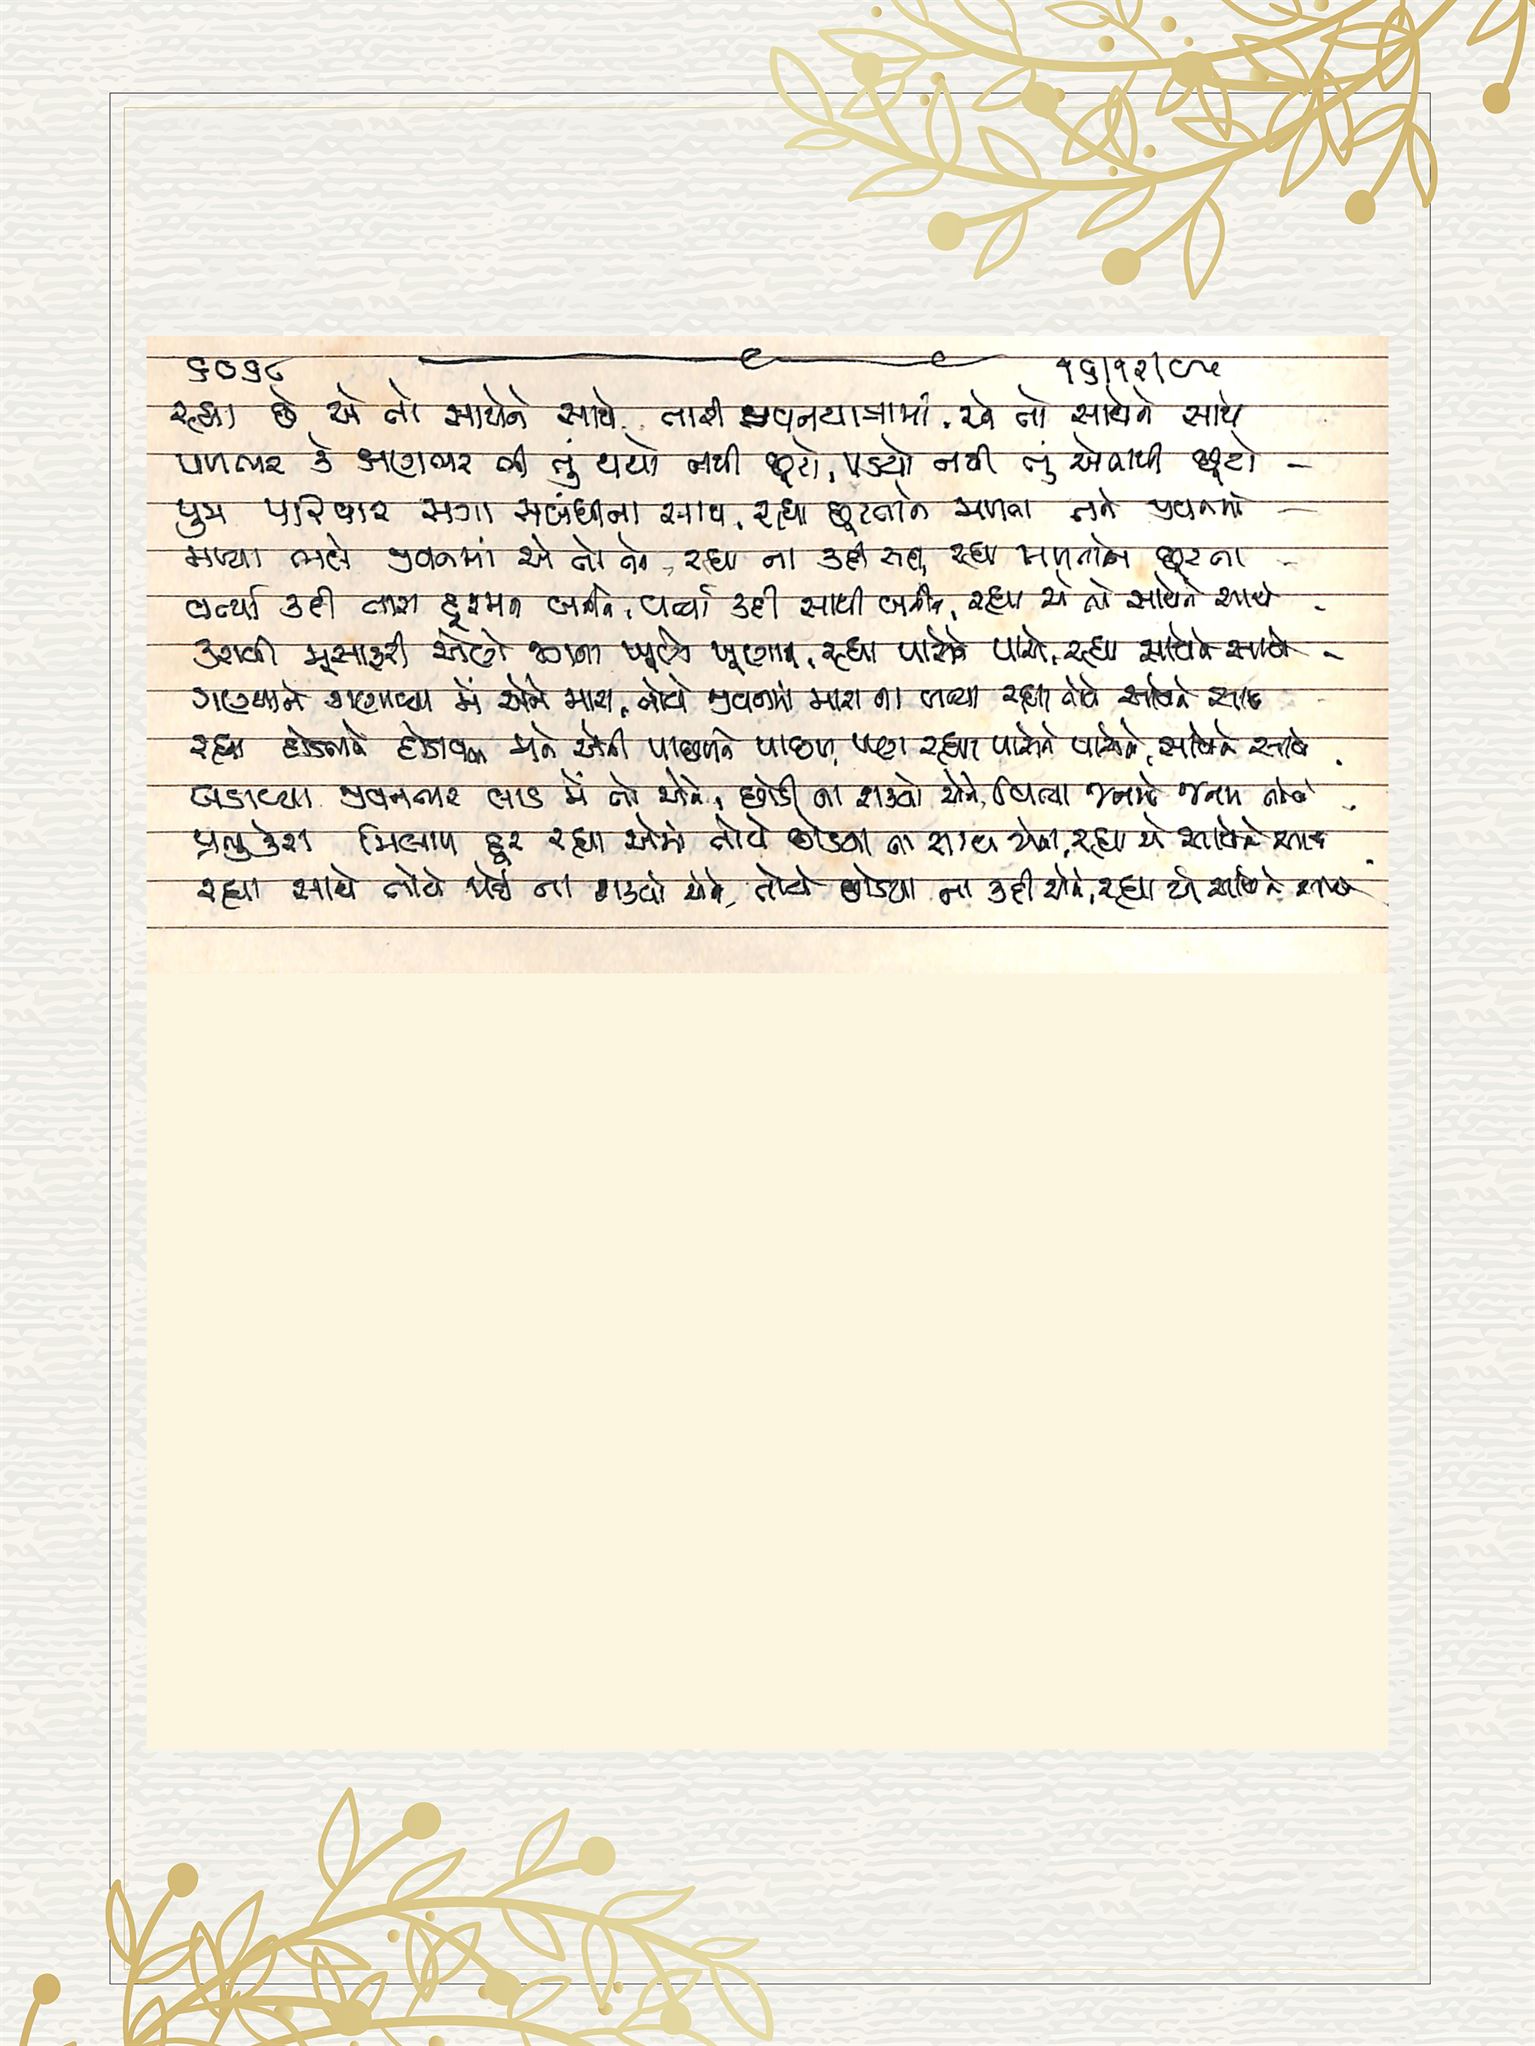 ૬૦૭૮ ૧૬/૧૨/૯૫
રહ્યા છે એ તો સાથેને સાથે, તારી જીવનયાત્રામાં, એ તો સાથેને સાથે
પળભર કે ક્ષણભર બી તું થયો નથી છૂટો, પડયો નથી તું એનાથી છૂટો -
પુત્ર પરિવાર સગા સબંધીના સાથ, રહ્યા છૂટતાને મળતા તને જીવનમાં -
મળ્યા ભલે જીવનમાં એ તો તને, રહ્યા ના કહીં સાથ, રહ્યા મળતાને છૂટતા -
બન્યા કદી તારા દુશ્મન બનીને, બન્યા કદી સાથી બનીને, રહ્યા એ તો સાથેને સાથે -
કરાવી મુસાફરી એણે જગના ખૂણે ખૂણાની, રહ્યા પાસેને પાસે, રહ્યા સાથેને સાથે -
ગણ્યાને ગણાવ્યા મેં એને મારા, તોયે જીવનમાં મારા ના બન્યા રહ્યા તોયે સાથેને સાથ
રહ્યા દોડતાને દોડાવતા મને એની પાછળને પાછળ, પણ રહ્યા પાસેને પાસેને, સાથેને સાથે -
લડાવ્યા જીવનભર લાડ મેં તો એને, છોડી ના શક્યો એને, વિત્યા જનમો જનમ તોયે -
પ્રભુ કેરા મિલાપ દૂર રહ્યા એમાં તોયે છોડવા ના સાથ એના, રહ્યા એ સાથેને સાથ -
રહ્યા સાથે તોયે ના શક્યો એને, તોયે છોડયા ના કદી એને, રહ્યા એ સાથેને સાથે